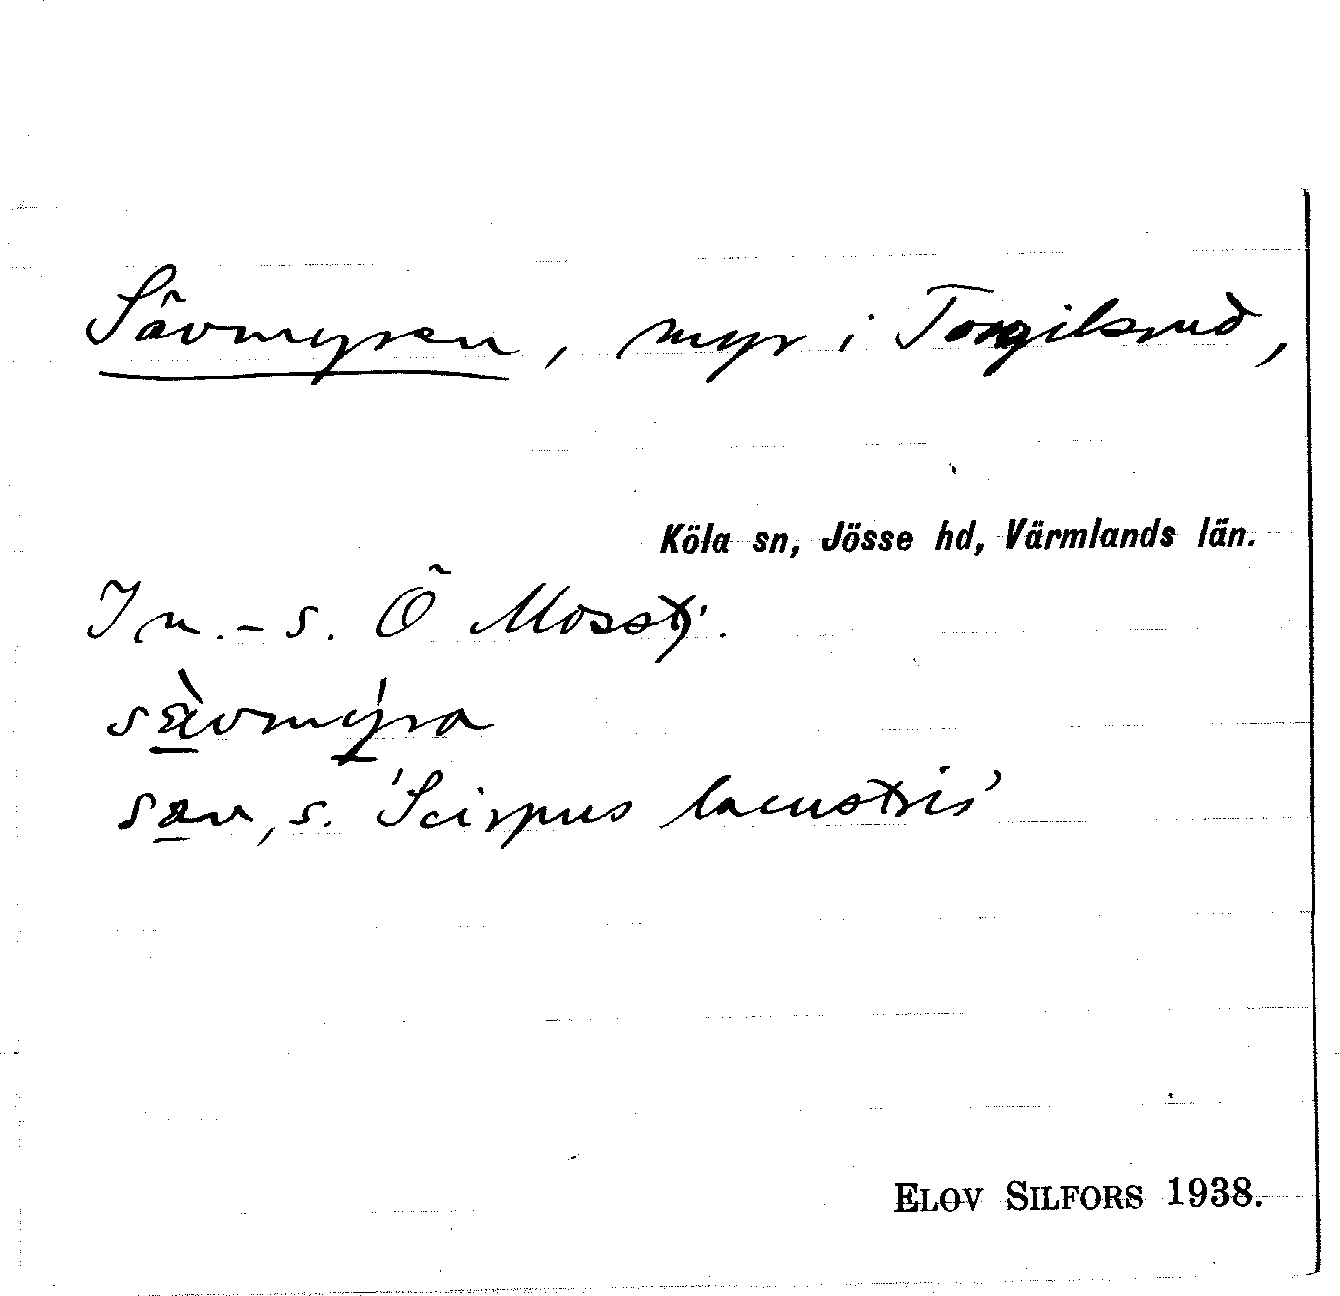 Sävmyren, myr i Torgilsrud,
Köla sn, Jösse hd, Värmlands län.
In.-s. Ö Mosstj.
sävmýra
sav, s. 'Scirpus lacustris'
ELOV SILFORS 1938.